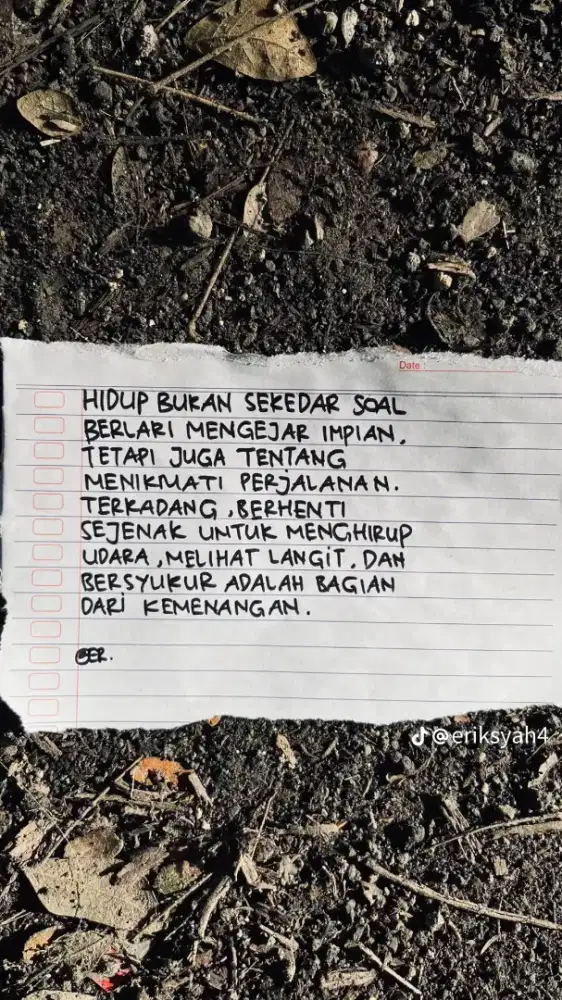 Date :
HIDUP BUKAN SEKEDAR SOAL
BERLARI MENGEJAR IMPIAN,
TETAPI JUGA TENTANG
MENIKMATI PERJALANAN.
TERKADANG, BERHENTI
SEJENAK UNTUK MENGHIRUP
UDARA, MELIHAT LANGIT, DAN
BERSYUKUR ADALAH BAGIAN
DARI KEMENANGAN.
BER.
@eriksyah4